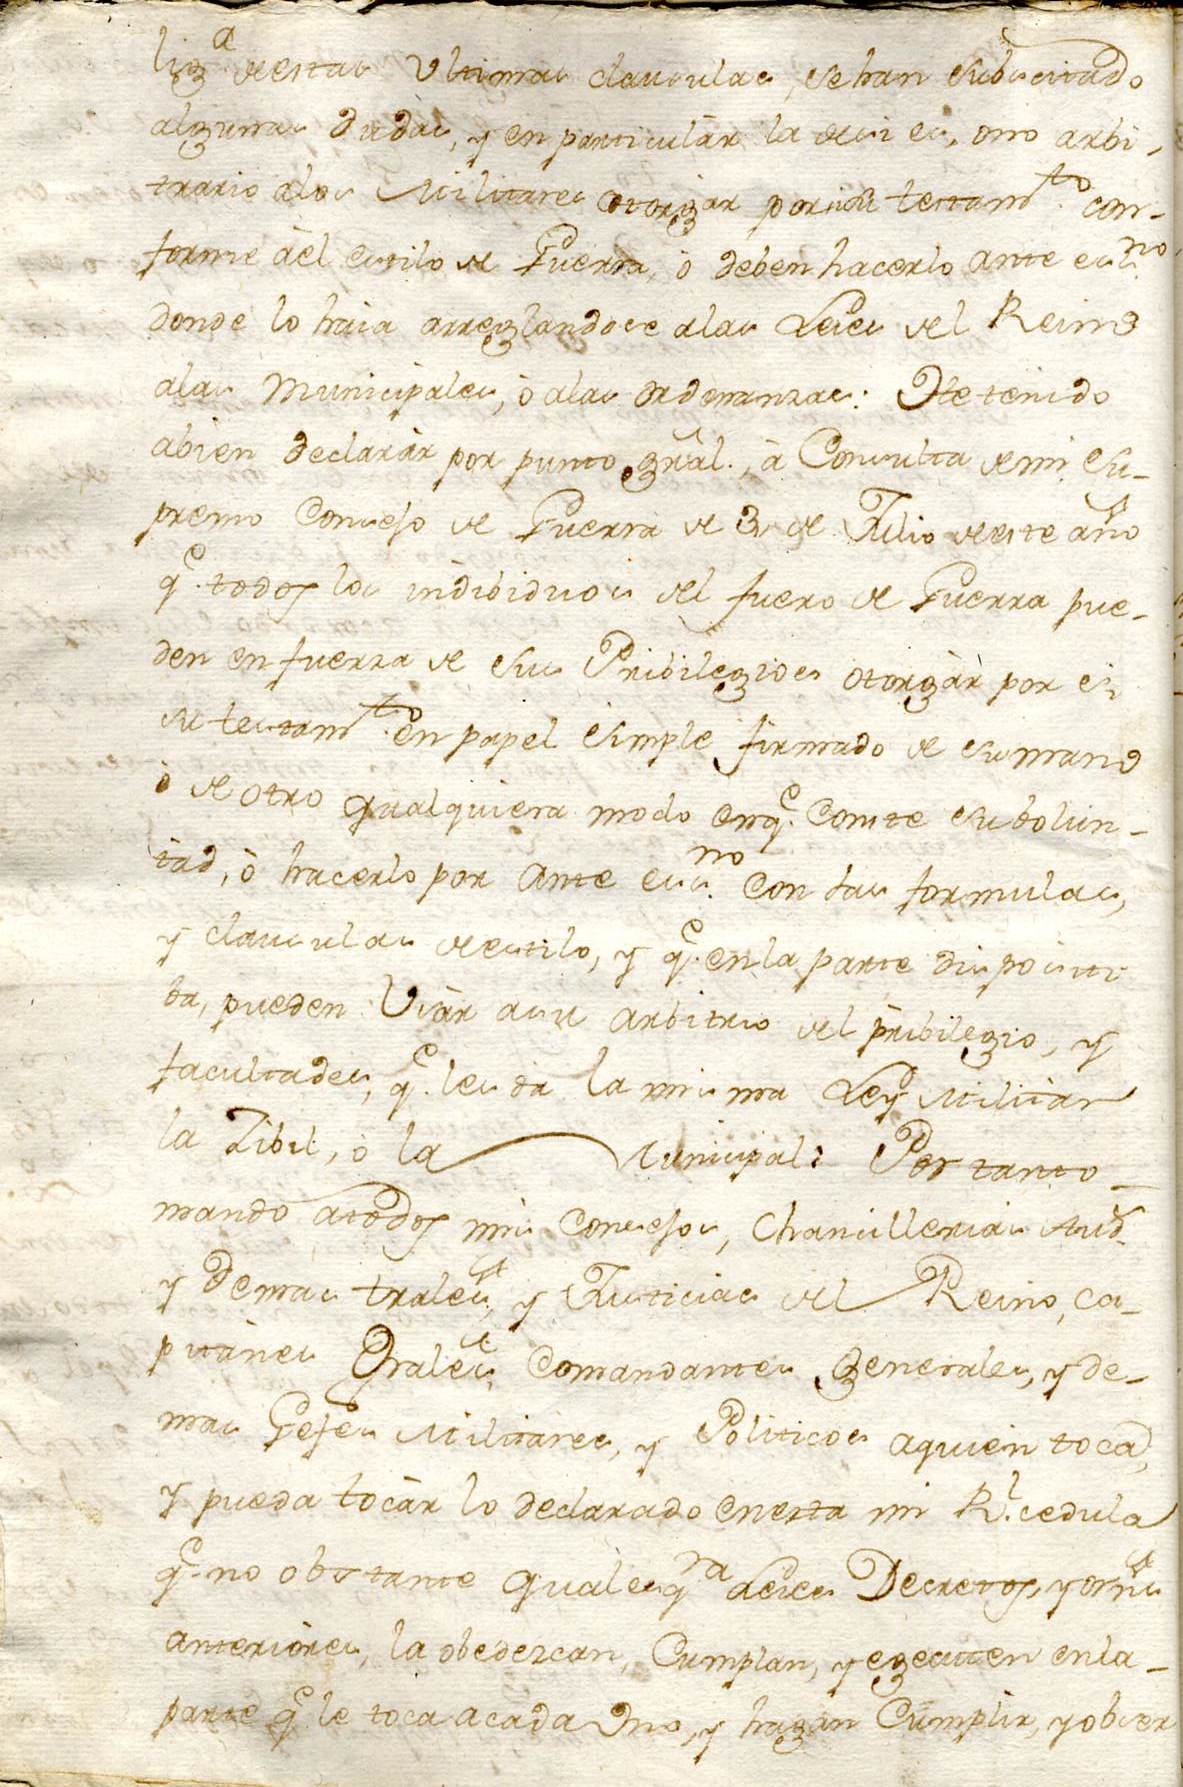 liga de estas Ultimas clausulas, se han Subscitado
algunas dudas, y en particular la de si es, ono arbi-
trario alos Militares otorgar por si su testamto. con-
forme àel estilo de Guerra, ò deben hacerlo ante essno.
donde lo haia arreglandose alas Leies del Reino
alas Municipales, ò alas ordenanzas: He tenido
abien declaràr por punto gral., à Consulta de mi Su-
premo Consejo de Guerra de 3 de Julio de este año
qe. todos los indibiduos del fuero de Guerra pue-
den en fuerza de sus Pribilegios otorgàr por si
su testamto. en papel simple firmado de su mano
ò de otro qualquiera modo enqe. Conste su bolun-
tad, ò hacerlo por ante essno. Con las formulas,
y clausulas de estilo, y qe. en la parte dispositi
ba, pueden Usàr asu arbitrio del pribilegio, y
facultades, qe. les da la misma Ley Militar
la Zibil, ò la Municipal: Por tanto
mando atodos mis Consejos, Chancillerias Auds.
y demas trales., y Justicias del Reino, Ca-
pitanes Grales. Comandantes Generales, y de-
mas Gefes Militares, y Politicos aquien toca,
y pueda tocàr lo declarado en esta mi Rl. cedula
qe. no obstante qualesqra Leies Decretos, y orns
anteriores, la obedezcan, Cumplan, y egecuten en la-
parte qe. le toca acada Uno, y hagan Cumplir, y obser